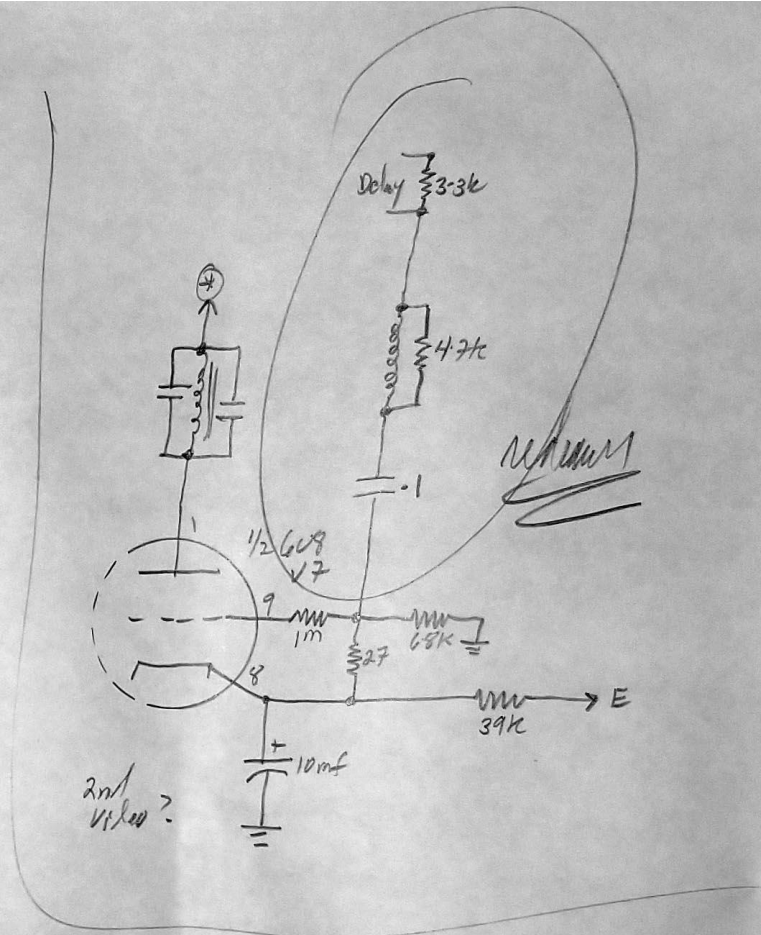 *
Delay 3.3k
4.7k
.1
1
1/2 6U8
V7
9
1m
68K
27
8
39K
E
+
10mf
2nd
Video?